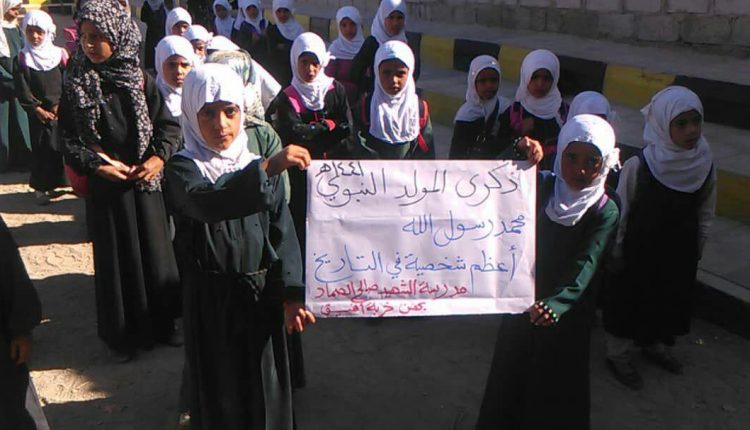 ذكرى المولد النبوي ١٤٤١هـ
محمد رسول الله
أعظم شخصية في التاريخ
مدرسة الشهيد صالح الصماد
خربة